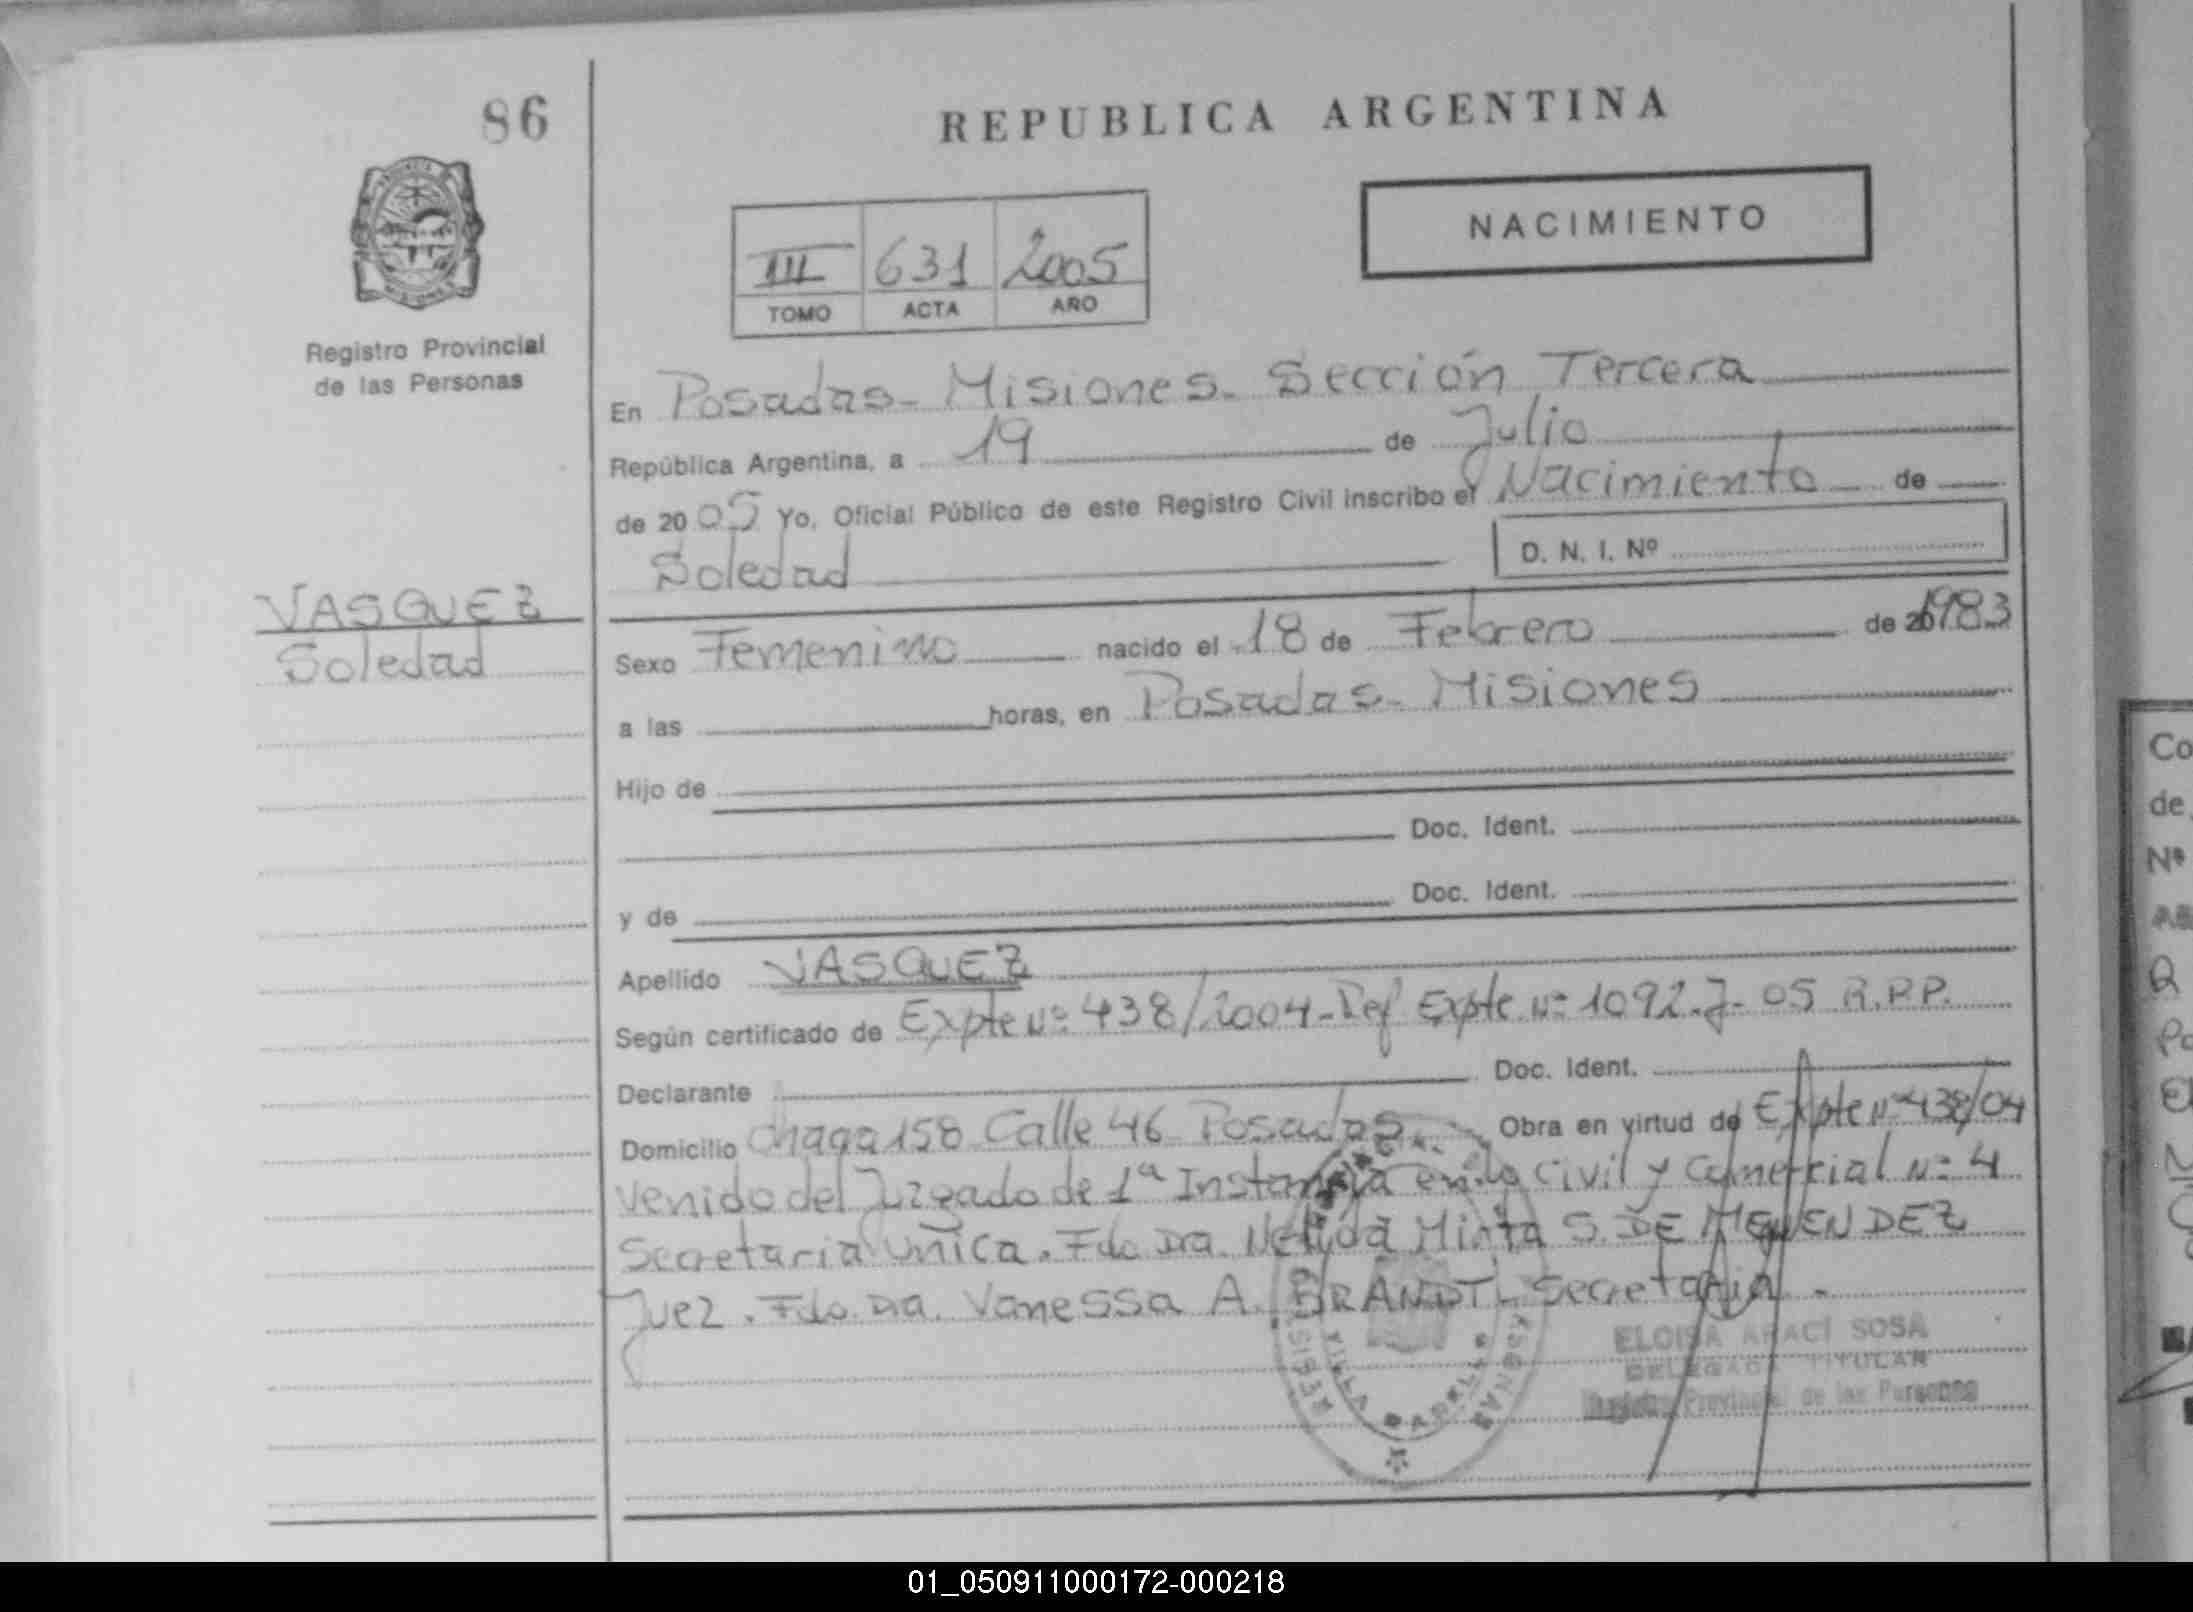 86
REPUBLICA ARGENTINA
NACIMIENTO
III 631 2005
TOMO ACTA AÑO
Registro Provincial
de las Personas
En Posadas - Misiones - Sección Tercera
República Argentina, a 19 de Julio
de 2005 Yo, Oficial Público de este Registro Civil inscribo el Nacimiento de
Soledad
D. N. I. Nº
VASQUEZ
Soledad
Sexo Femenino nacido el 18 de Febrero de 20 1983
a las horas, en Posadas - Misiones
Hijo de
Doc. Ident.
y de Doc. Ident.
Apellido VASQUEZ
Según certificado de Expte Nº 438/2004 - Ref Expte Nº 1092-J-05 R.P.P.
Declarante Doc. Ident.
Domicilio Chaga 158 Calle 46 Posadas Obra en virtud de Expte Nº 438/04
venido del Juzgado de 1ª Instancia en lo Civil y Comercial Nº 4
Secretaria Unica. Fdo Dra. Nelida Mirta S. DE
Juez. Fdo. Dra. Vanessa A. BRANDT - Secretaria -
ELOISA ARACI SOSA
DELEGADA TITULAR
Registro Provincial de las Personas
VILLA
Co
de
Nº
01_050911000172-000218